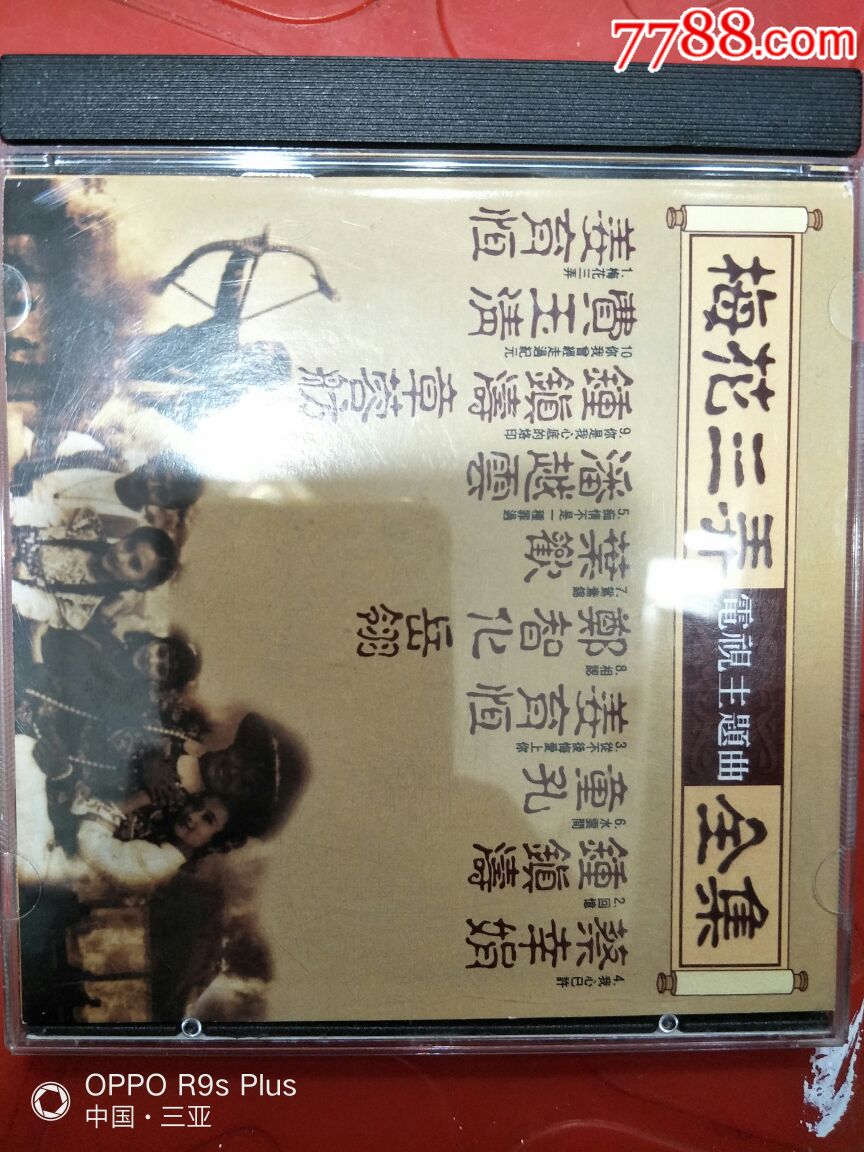 7788.com
梅花三弄
電視主題曲
全集
姜育恒
1. 梅花三弄
費玉清
10. 你我曾經走過紀元
鍾鎮濤 章蓉舫
9. 你是我心底的烙印
潘越雲
5. 痴情不是一種罪過
葉歡
7. 鴛鴦錦
鄭智化 岳翎
8. 相認
姜育恒
3. 從不後悔愛上你
童孔
6. 水雲間
鍾鎮濤
2. 回憶
蔡幸娟
4. 我心已許
OPPO R9s Plus
中国·三亚